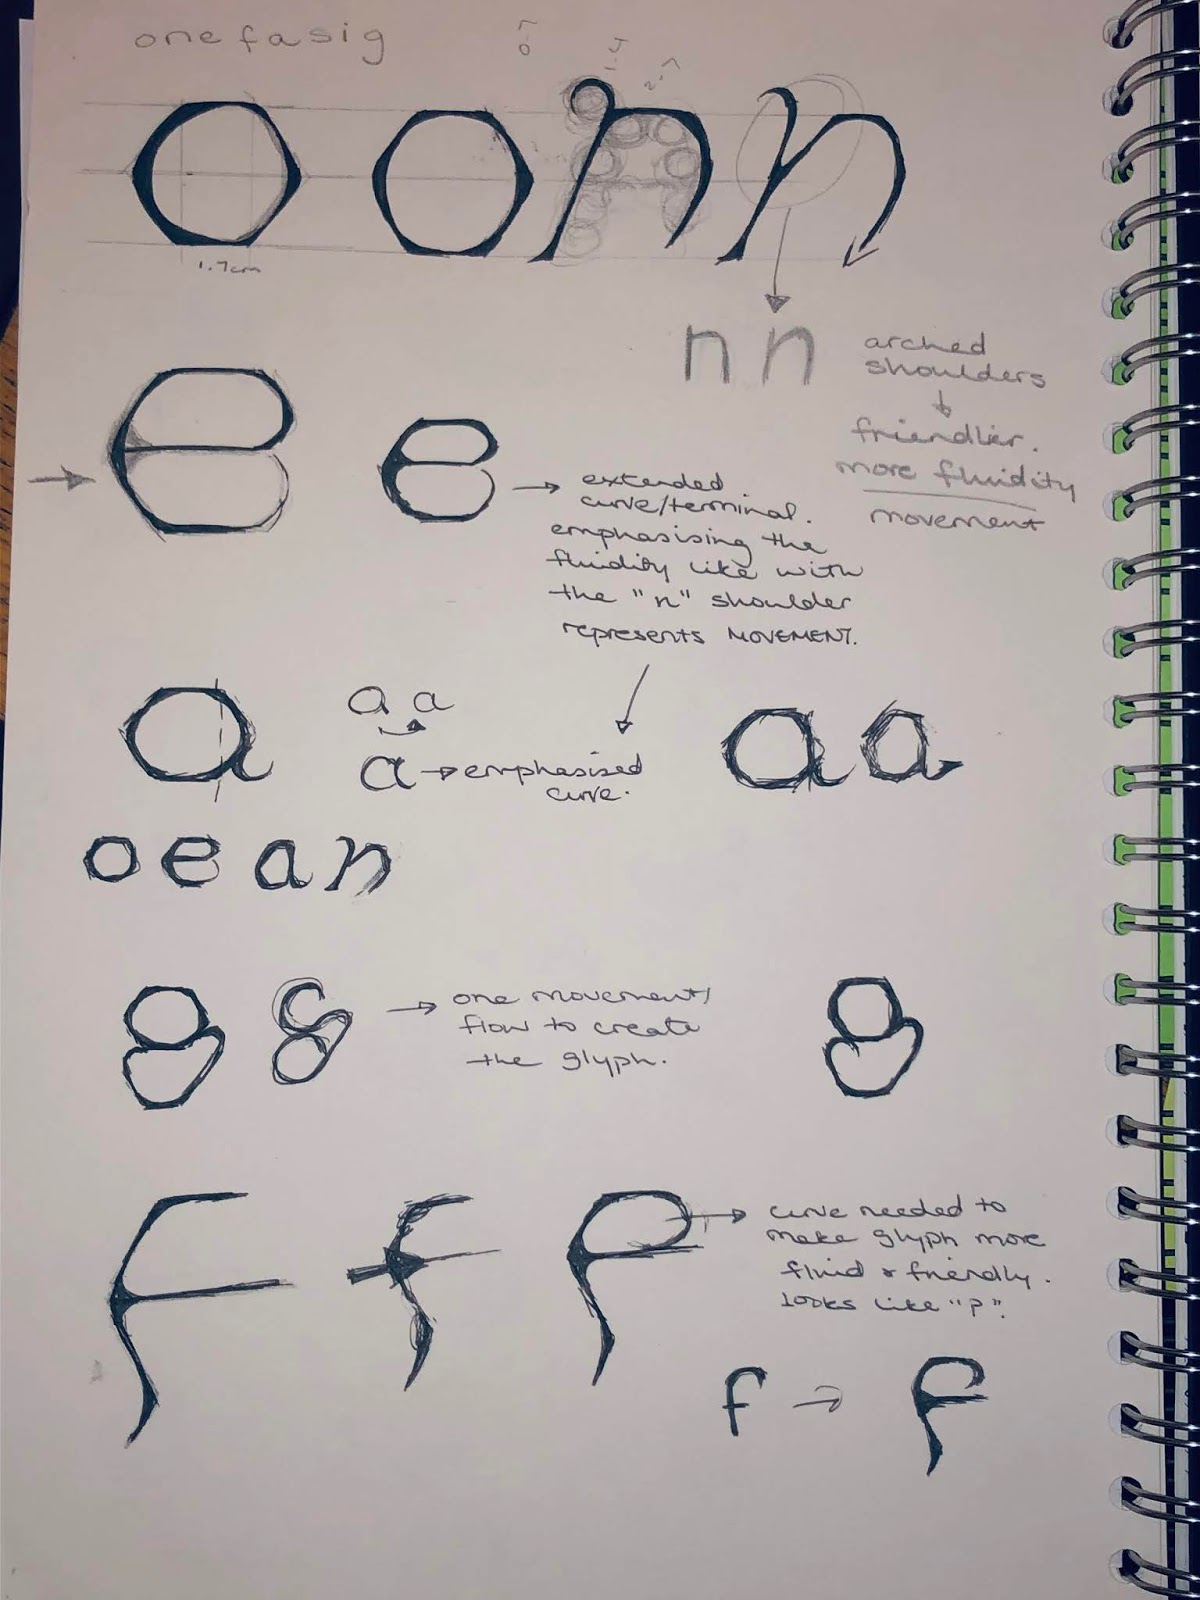 onefasig
o o n n
1.7cm
n n
arched
shoulders
friendlier.
more fluidity
movement
e e
extended
curve/terminal.
emphasising the
fluidity like with
the "n" shoulder
represents MOVEMENT.
a a a
a emphasised
curve.
a a
o e a n
g g
one movement/
flow to create
the glyph.
g
f f f
curve needed to
make glyph more
fluid & friendly.
looks like "p".
f f